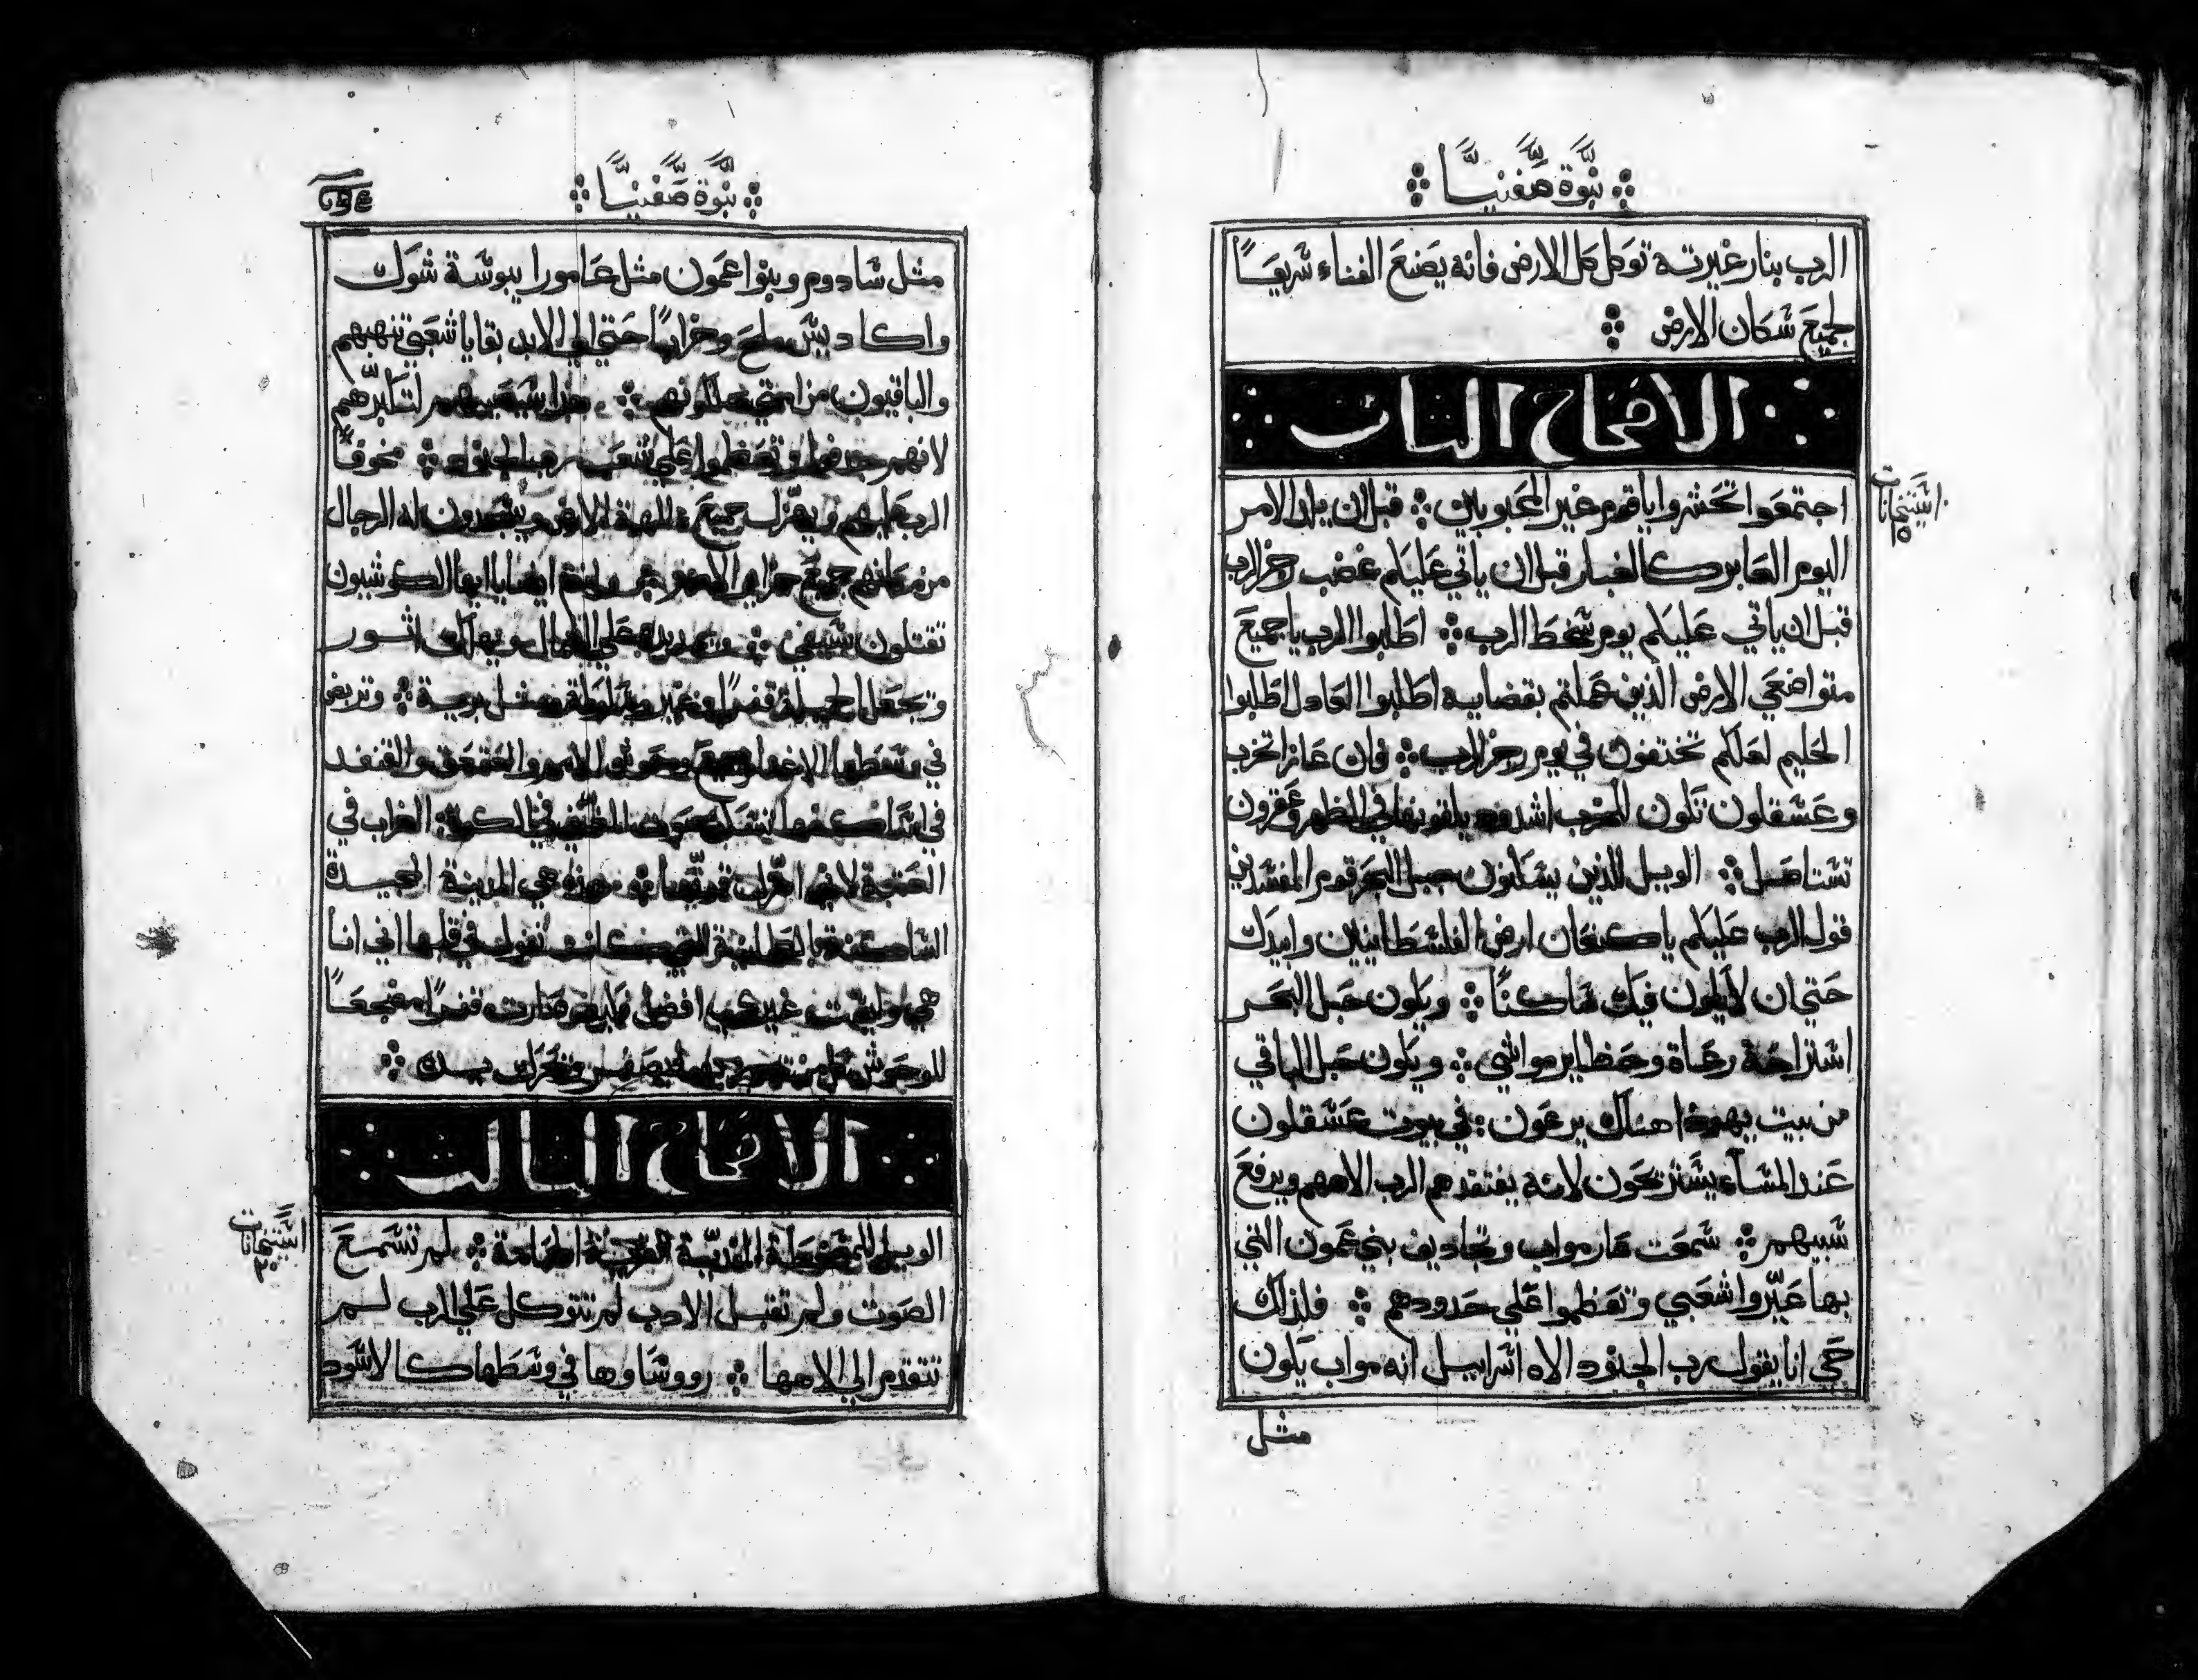 نبوة صفنيا
الرب بنار غيرته توكل كل الارض فانه يصنع الفناء سريعًا
لجميع سكان الارض
الاصحاح الثاني
استيخانات ١٥
اجتمعوا اتحشروا يا قوم غير المحبوبين قبل ان يلد الامر
اليوم العابر كالغبار قبل ان ياتي عليكم غضب رجز الرب
قبل ان ياتي عليكم يوم سخط الرب اطلبوا الرب يا جميع
متواضعي الارض الذين عملتم بقضايه اطلبوا العادل اطلبوا
الحليم لعلكم تختفون في يوم رجز الرب فان عازا تخرب
وعسقلون تكون للخرب اشدود يلقونها في الظهر وعقرون
تستاصل الويل للذين يسكنون حبل البحر قوم المفسدين
قول الرب عليكم يا كنعان ارض الفلسطانيين وابيدك
حتي ان لا يكون فيك ساكنًا ويكون حبل البحر
استراحة رعاة وحظاير مواشي ويكون حبل الباقي
من بيت يهودا هناك يرعون في بيوت عسقلون
عند المساء يستريحون لانه يفتقدهم الرب الاههم ويرفع
سبيهم سمعت عار مواب وتجاديف بني عمون التي
بها عيّروا شعبي وتعظموا علي حدودهم فلذلك
حي انا يقول رب الجنود الاه اسراييل انه مواب يكون
مثل
نبوة صفنيا
مثل سادوم وبنوا عمون مثل عامورا يبوسة شوك
واكاديس ملح وخرابًا حتي الي الابد بقايا شعبي تنهبهم
والباقيون من امتي يملكونهم هذا سيصيبهم لتكبرهم
لانهم جدفوا وتعظموا علي شعب رب الجنود مخوفًا
الرب عليهم ويهزل جميع الهة الارض ويسجدون له الرجال
من مكانهم جميع جزاير الامم وانتم ايضا يا ايها الكوشيون
تقتلون بسيفي ويمد يده علي الشمال ويهلك اثور
وتجعل الجميلة قفرًا وغير مسلوكة ومثل برية وتربض
في وسطها الاغنام وجميع وحوش الامم والعقعق والقنفد
في اساكفها ينشد صوت المغني في الكوة الغراب في
العتبة لاني اهزل قوتها هذه هي المدينة المجيدة
الساكنة بالطمانية التي كانت تقول في قلبها اني انا
هي وليست غيري افضل كيف صارت قفرًا مضجعًا
للوحوش كل من يجوز بها يصفر ويحرك يده
الاصحاح الثالث
استيخانات ٢٠
الويل للمغضبة المفدية القرية الحمامة لم تسمع
الصوت ولم تقبل الادب لم تتوكل علي الرب لم
تتقدم الي الاهها رووساوها في وسطها كالاسود